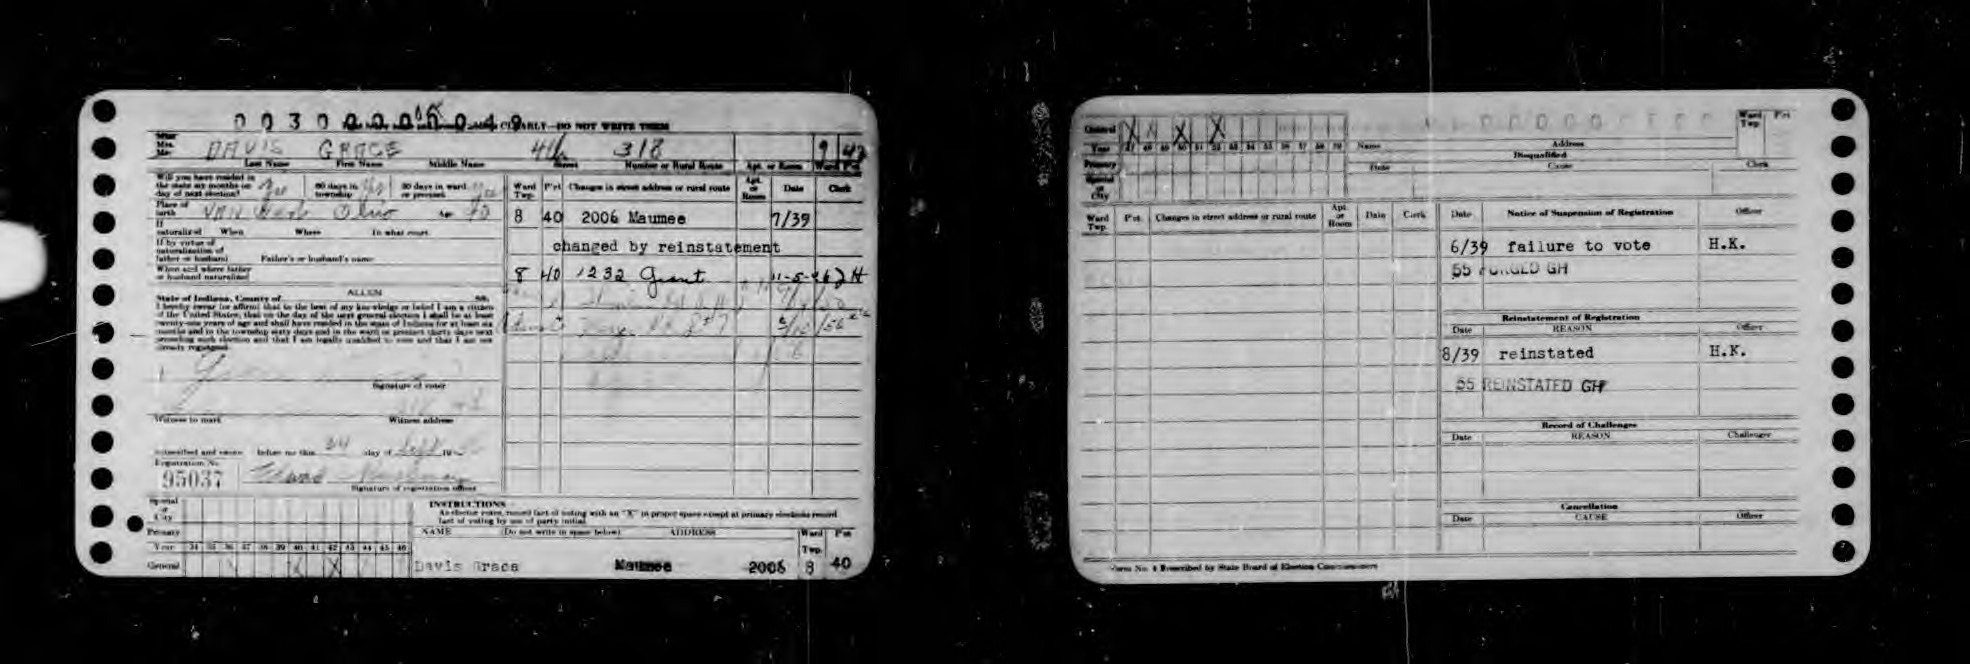 0030000 5049
CLEARLY—DO NOT WRITE THEM
Miss
Mrs.
Mr.
DAVIS GRACE 4th 318 9 42
Last Name First Name Middle Name Street Number or Rural Route Apt. or Room Ward Pct
Will you have resided in the state six months on day of next election? Yes 60 days in township Yes 30 days in ward or precinct Yes
Place of birth VAN Wert Ohio
If naturalized When Where In what court
If by virtue of naturalization of father or husband Father's or husband's name
When and where father or husband naturalized
State of Indiana, County of ALLEN SS:
I hereby swear (or affirm) that to the best of my knowledge or belief I am a citizen
of the United States, that on the day of the next general election I shall be at least
twenty-one years of age and shall have resided in the state of Indiana for at least six
months and in the township sixty days and in the ward or precinct thirty days next
preceding such election and that I am legally qualified to vote and that I am not
already registered.
Signature of voter
Witness to mark Witness address
Subscribed and sworn before me this 24 day of Sept 19
Registration No.
95037
Signature of registration officer
Ward Twp. P'ct Changes in street address or rural route Apt. or Room Date Clerk
8 40 2006 Maumee 7/39
changed by reinstatement
8 40 1232 Grant 11-5-46 JH
Special or City
Primary
Year 34 35 36 37 38 39 40 41 42 43 44 45 46
General X X
INSTRUCTIONS
As elector votes, record fact of voting with an "X" in proper space except at primary elections record
fact of voting by use of party initial.
NAME (Do not write in space below) ADDRESS Ward Twp. P'ct
Davis Grace Maumee 2006 8 40
General X X X X
Year 47 48 49 50 51 52 53 54 55 56 57 58 59
Primary
Special or City
Name Address Ward Twp. Pct
Disqualified
Date Cause Clerk
Ward Twp. P'ct Changes in street address or rural route Apt. or Room Date Clerk
Date Notice of Suspension of Registration Officer
6/39 failure to vote H.K.
55 PURGED GH
Reinstatement of Registration
Date REASON Officer
8/39 reinstated H.K.
55 REINSTATED GH
Record of Challenges
Date REASON Challenger
Cancellation
Date CAUSE Officer
Form No. 4 Prescribed by State Board of Election Commissioners